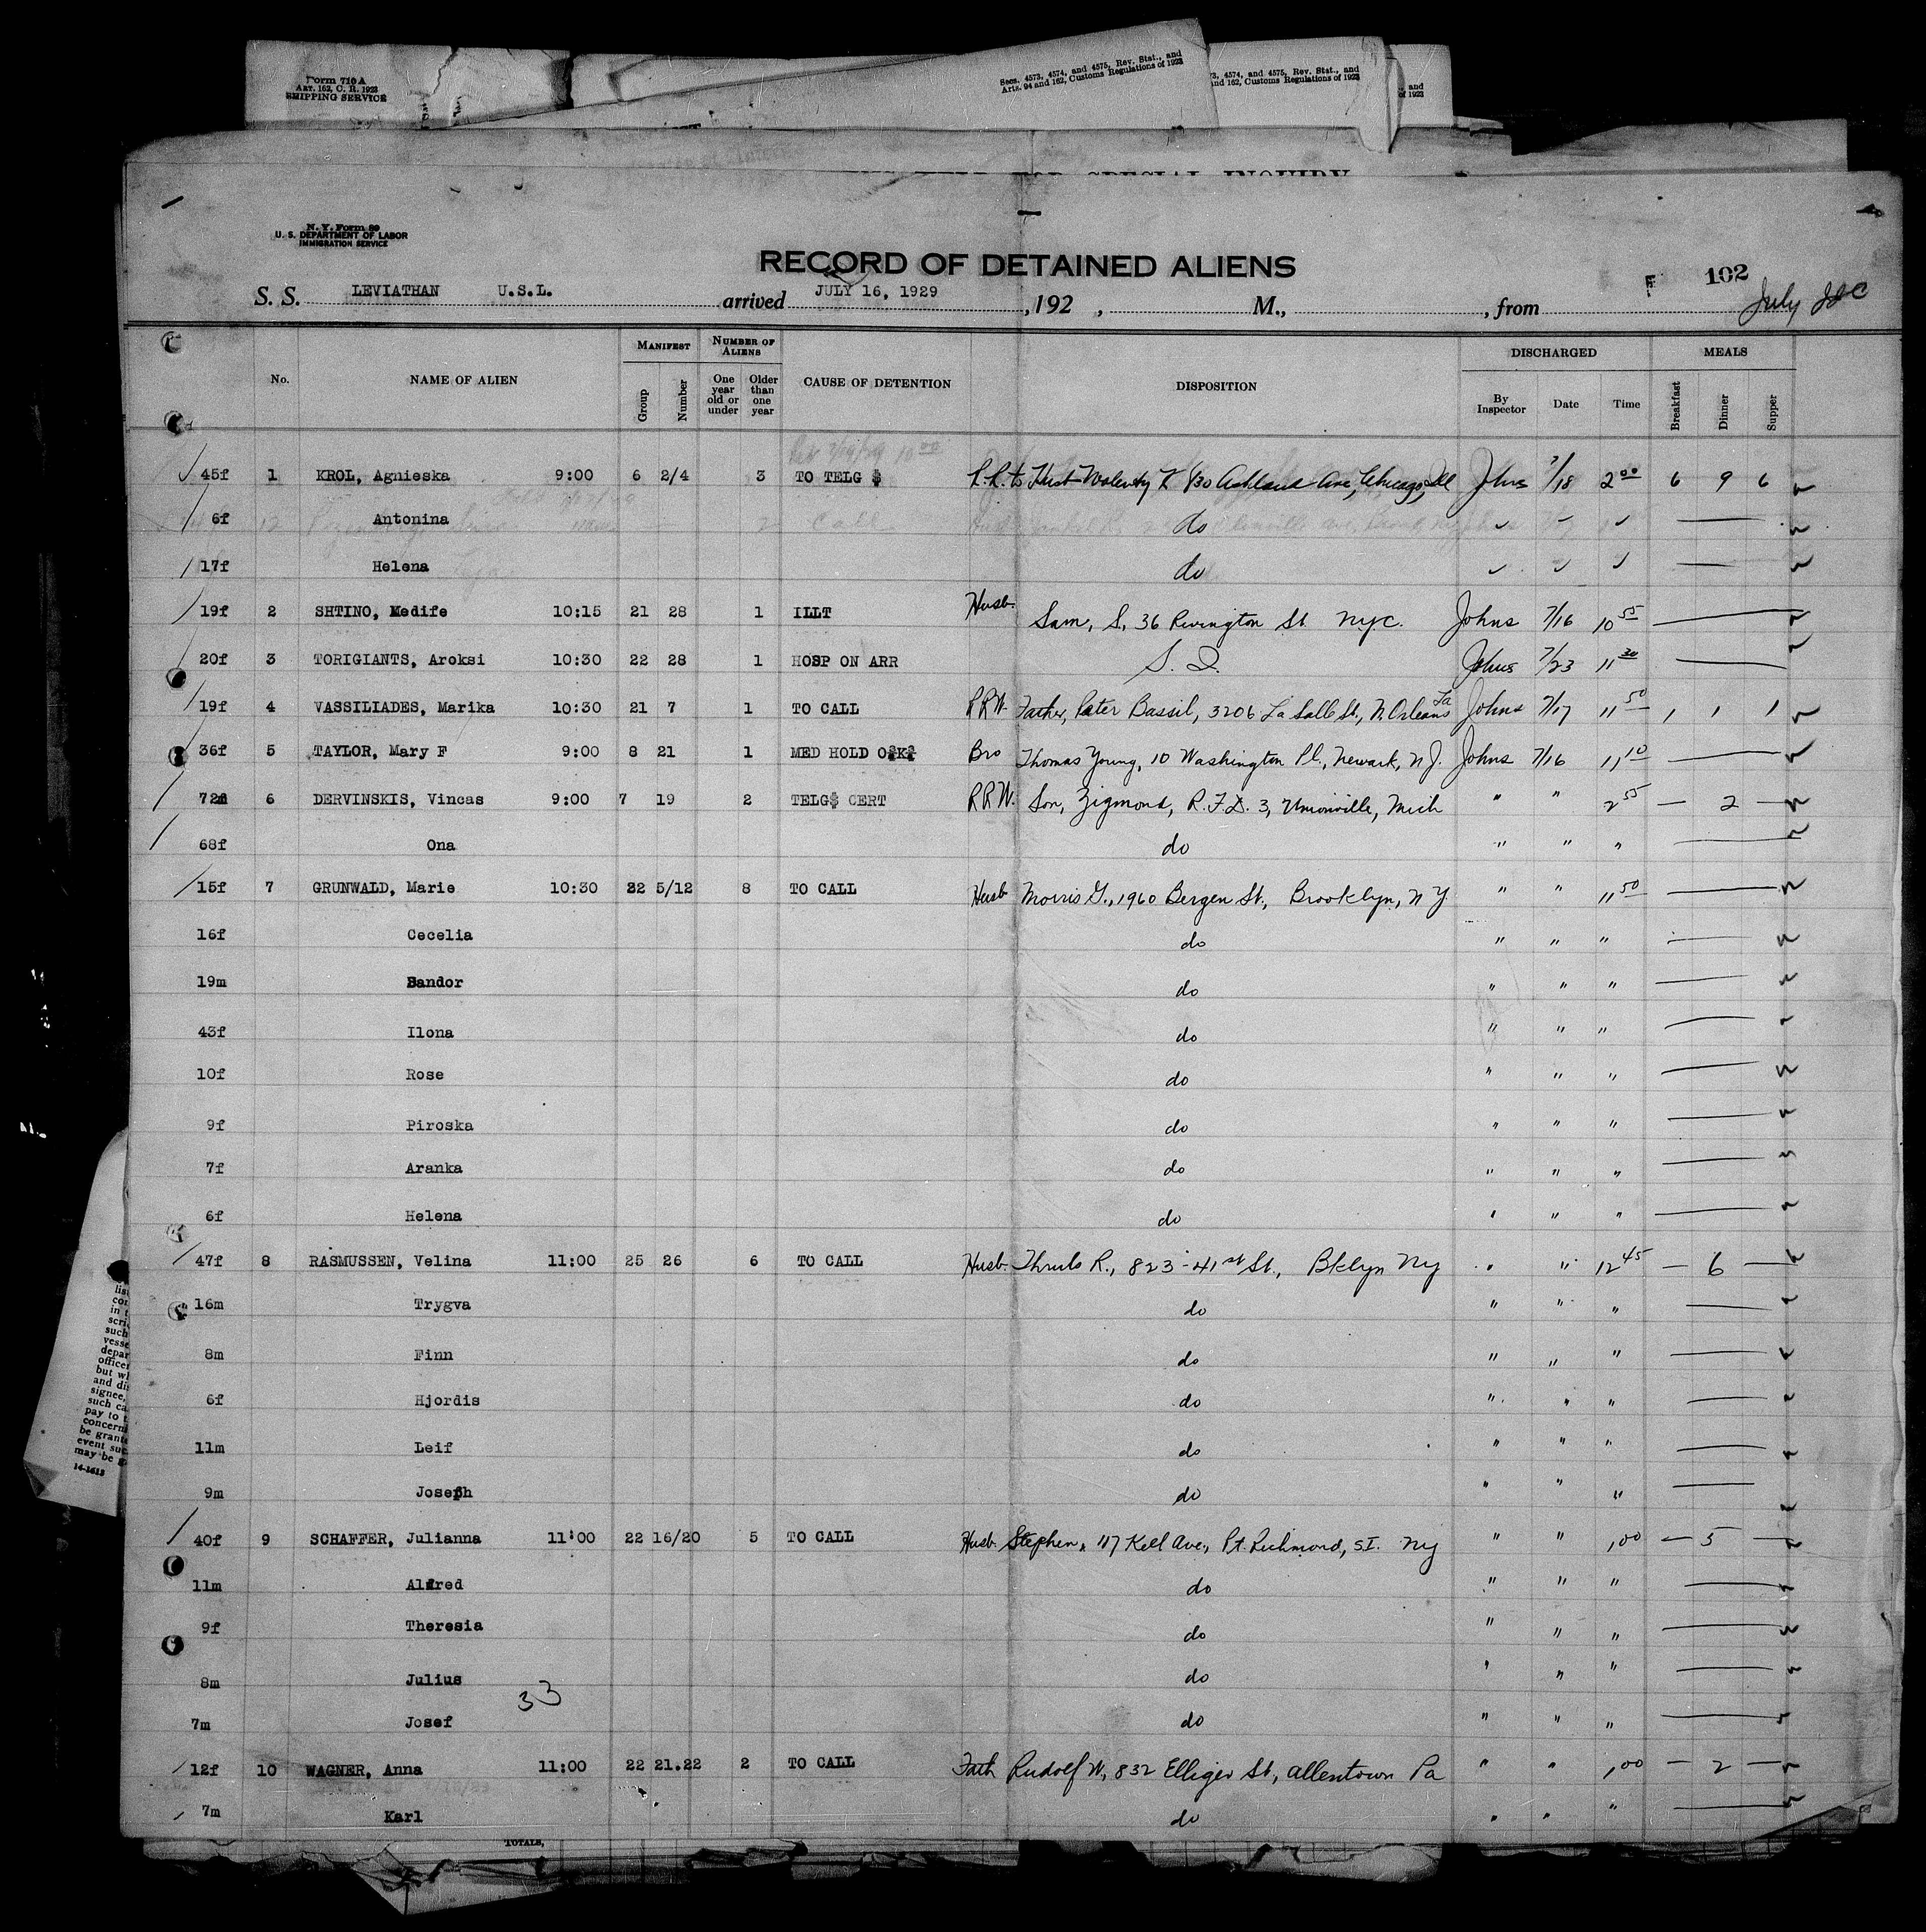 Form 710 A
Art. 162, C. R. 1923
SHIPPING SERVICE
Secs. 4573, 4574, and 4575, Rev. Stat., and
Arts. 94 and 162, Customs Regulations of 1923
73, 4574, and 4575, Rev. Stat., and
and 162, Customs Regulations of 1923
, and
of 1923
FOR SPECIAL INQUIRY
N. Y. Form 89
U. S. DEPARTMENT OF LABOR
IMMIGRATION SERVICE
RECORD OF DETAINED ALIENS
102
S. S. LEVIATHAN U.S.L. arrived JULY 16, 1929 , 192 , M., , from July
No. NAME OF ALIEN MANIFEST Group Number NUMBER OF ALIENS One year old or under Older than one year CAUSE OF DETENTION DISPOSITION DISCHARGED By Inspector Date Time MEALS Breakfast Dinner Supper
45f 1 KROL, Agnieska 9:00 6 2/4 3 TO TELG $ Ashland Ave, Chicago, Ill Johns 7/18 2 00 6 9 6
6f Antonina do
17f Helena do
19f 2 SHTINO, Medife 10:15 21 28 1 ILLT Husb. Sam, S, 36 Rivington St. N.y.c. Johns 7/16 10 55
20f 3 TORIGIANTS, Aroksi 10:30 22 28 1 HOSP ON ARR S. I. Johns 7/23 11 30
19f 4 VASSILIADES, Marika 10:30 21 7 1 TO CALL RRW. Father, Peter Bassil, 3206 La Salle St., N. Orleans La Johns 7/17 11 50 1 1 1
36f 5 TAYLOR, Mary F 9:00 8 21 1 MED HOLD O.K. Bro Thomas Young, 10 Washington Pl., Newark, N J. Johns 7/16 11 10
72m 6 DERVINSKIS, Vincas 9:00 7 19 2 TELG$ CERT RRW. Son, Zigmond, R.F.D. 3, Unionville, Mich " " 2 55 — 2 —
68f Ona do " " "
15f 7 GRUNWALD, Marie 10:30 22 5/12 8 TO CALL Husb Morris G., 1960 Bergen St., Brooklyn, N Y. " " 11 50
16f Cecelia do " " "
19m Sandor do " " "
43f Ilona do " " "
10f Rose do " " "
9f Piroska do " " "
7f Aranka do " " "
6f Helena do " " "
47f 8 RASMUSSEN, Velina 11:00 25 26 6 TO CALL Husb. R., 823 - 41st St., Bklyn Ny " " 12 45 — 6 —
16m Trygva do " " "
8m Finn do " " "
6f Hjordis do " " "
11m Leif do " " "
9m Joseph do " " "
40f 9 SCHAFFER, Julianna 11:00 22 16/20 5 TO CALL Husb. Stephen, 117 Kell Ave., Pt. Richmond, S.I. Ny " " 1 00 — 5 —
11m Alfred do " " "
9f Theresia do " " "
8m Julius do " " "
33
7m Josef do " " "
12f 10 WAGNER, Anna 11:00 22 21.22 2 TO CALL Fath Rudolf W, 832 Elliger St, Allentown Pa " " 1 00 — 2 —
7m Karl do " " "
TOTALS,
lis
con
in t
scri
such
vesse
depar
officer
but wh
and dis
signee,
such ca
pay to t
concern
be grant
event suc
may be g
14-1613